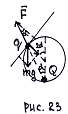 F
q
mg
Q
РИС. 23